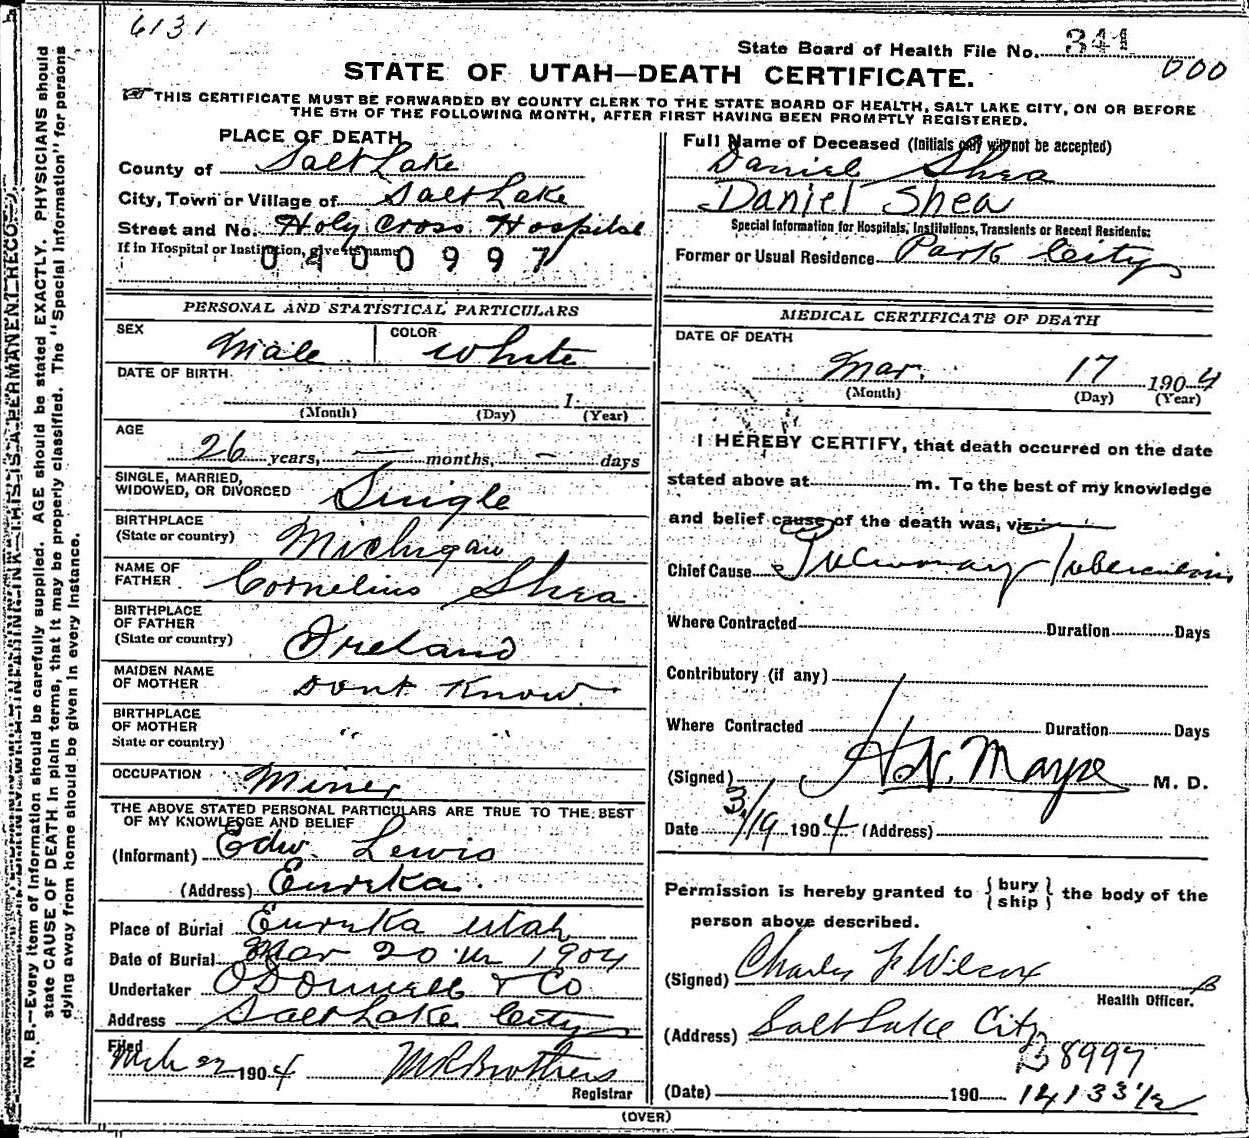 6131
State Board of Health File No. 341
000
STATE OF UTAH—DEATH CERTIFICATE.
THIS CERTIFICATE MUST BE FORWARDED BY COUNTY CLERK TO THE STATE BOARD OF HEALTH, SALT LAKE CITY, ON OR BEFORE
THE 5TH OF THE FOLLOWING MONTH, AFTER FIRST HAVING BEEN PROMPTLY REGISTERED.
PLACE OF DEATH
County of Salt Lake
City, Town or Village of Salt Lake
Street and No. Holy Cross Hospital
If in Hospital or Institution, give its name
0400997
Full Name of Deceased (Initials only will not be accepted)
Daniel Shea
Daniel Shea
Special Information for Hospitals, Institutions, Transients or Recent Residents:
Former or Usual Residence Park City
PERSONAL AND STATISTICAL PARTICULARS
SEX Male COLOR White
DATE OF BIRTH
1
(Month) (Day) (Year)
AGE
26 years, — months, — days
SINGLE, MARRIED,
WIDOWED, OR DIVORCED Single
BIRTHPLACE
(State or country) Michigan
NAME OF
FATHER Cornelius Shea
BIRTHPLACE
OF FATHER
(State or country) Ireland
MAIDEN NAME
OF MOTHER Dont Know
BIRTHPLACE
OF MOTHER
State or country) " "
OCCUPATION Miner
THE ABOVE STATED PERSONAL PARTICULARS ARE TRUE TO THE BEST
OF MY KNOWLEDGE AND BELIEF
(Informant) Edw. Lewis
(Address) Eureka.
Place of Burial Eureka Utah
Date of Burial Mar 20th 1904
Undertaker O'Donnell & Co
Address Salt Lake City
Filed
Mch 22 1904 M R Brothers
Registrar
MEDICAL CERTIFICATE OF DEATH
DATE OF DEATH
Mar. 17 1904
(Month) (Day) (Year)
I HEREBY CERTIFY, that death occurred on the date
stated above at m. To the best of my knowledge
and belief cause of the death was, viz:
Chief Cause Pulmonary Tuberculosis
Where Contracted Duration Days
Contributory (if any)
Where Contracted Duration Days
(Signed) M. D.
Date 3/19 1904 (Address)
Permission is hereby granted to {bury ship} the body of the
person above described.
(Signed) Charles F Wilcox
Health Officer.
(Address) Salt Lake City
B8997
(Date) 190 14133 1/2
(OVER)
N. B.—Every item of information should be carefully supplied. AGE should be stated EXACTLY. PHYSICIANS should
state CAUSE OF DEATH in plain terms, that it may be properly classified. The "Special Information" for persons
dying away from home should be given in every instance.